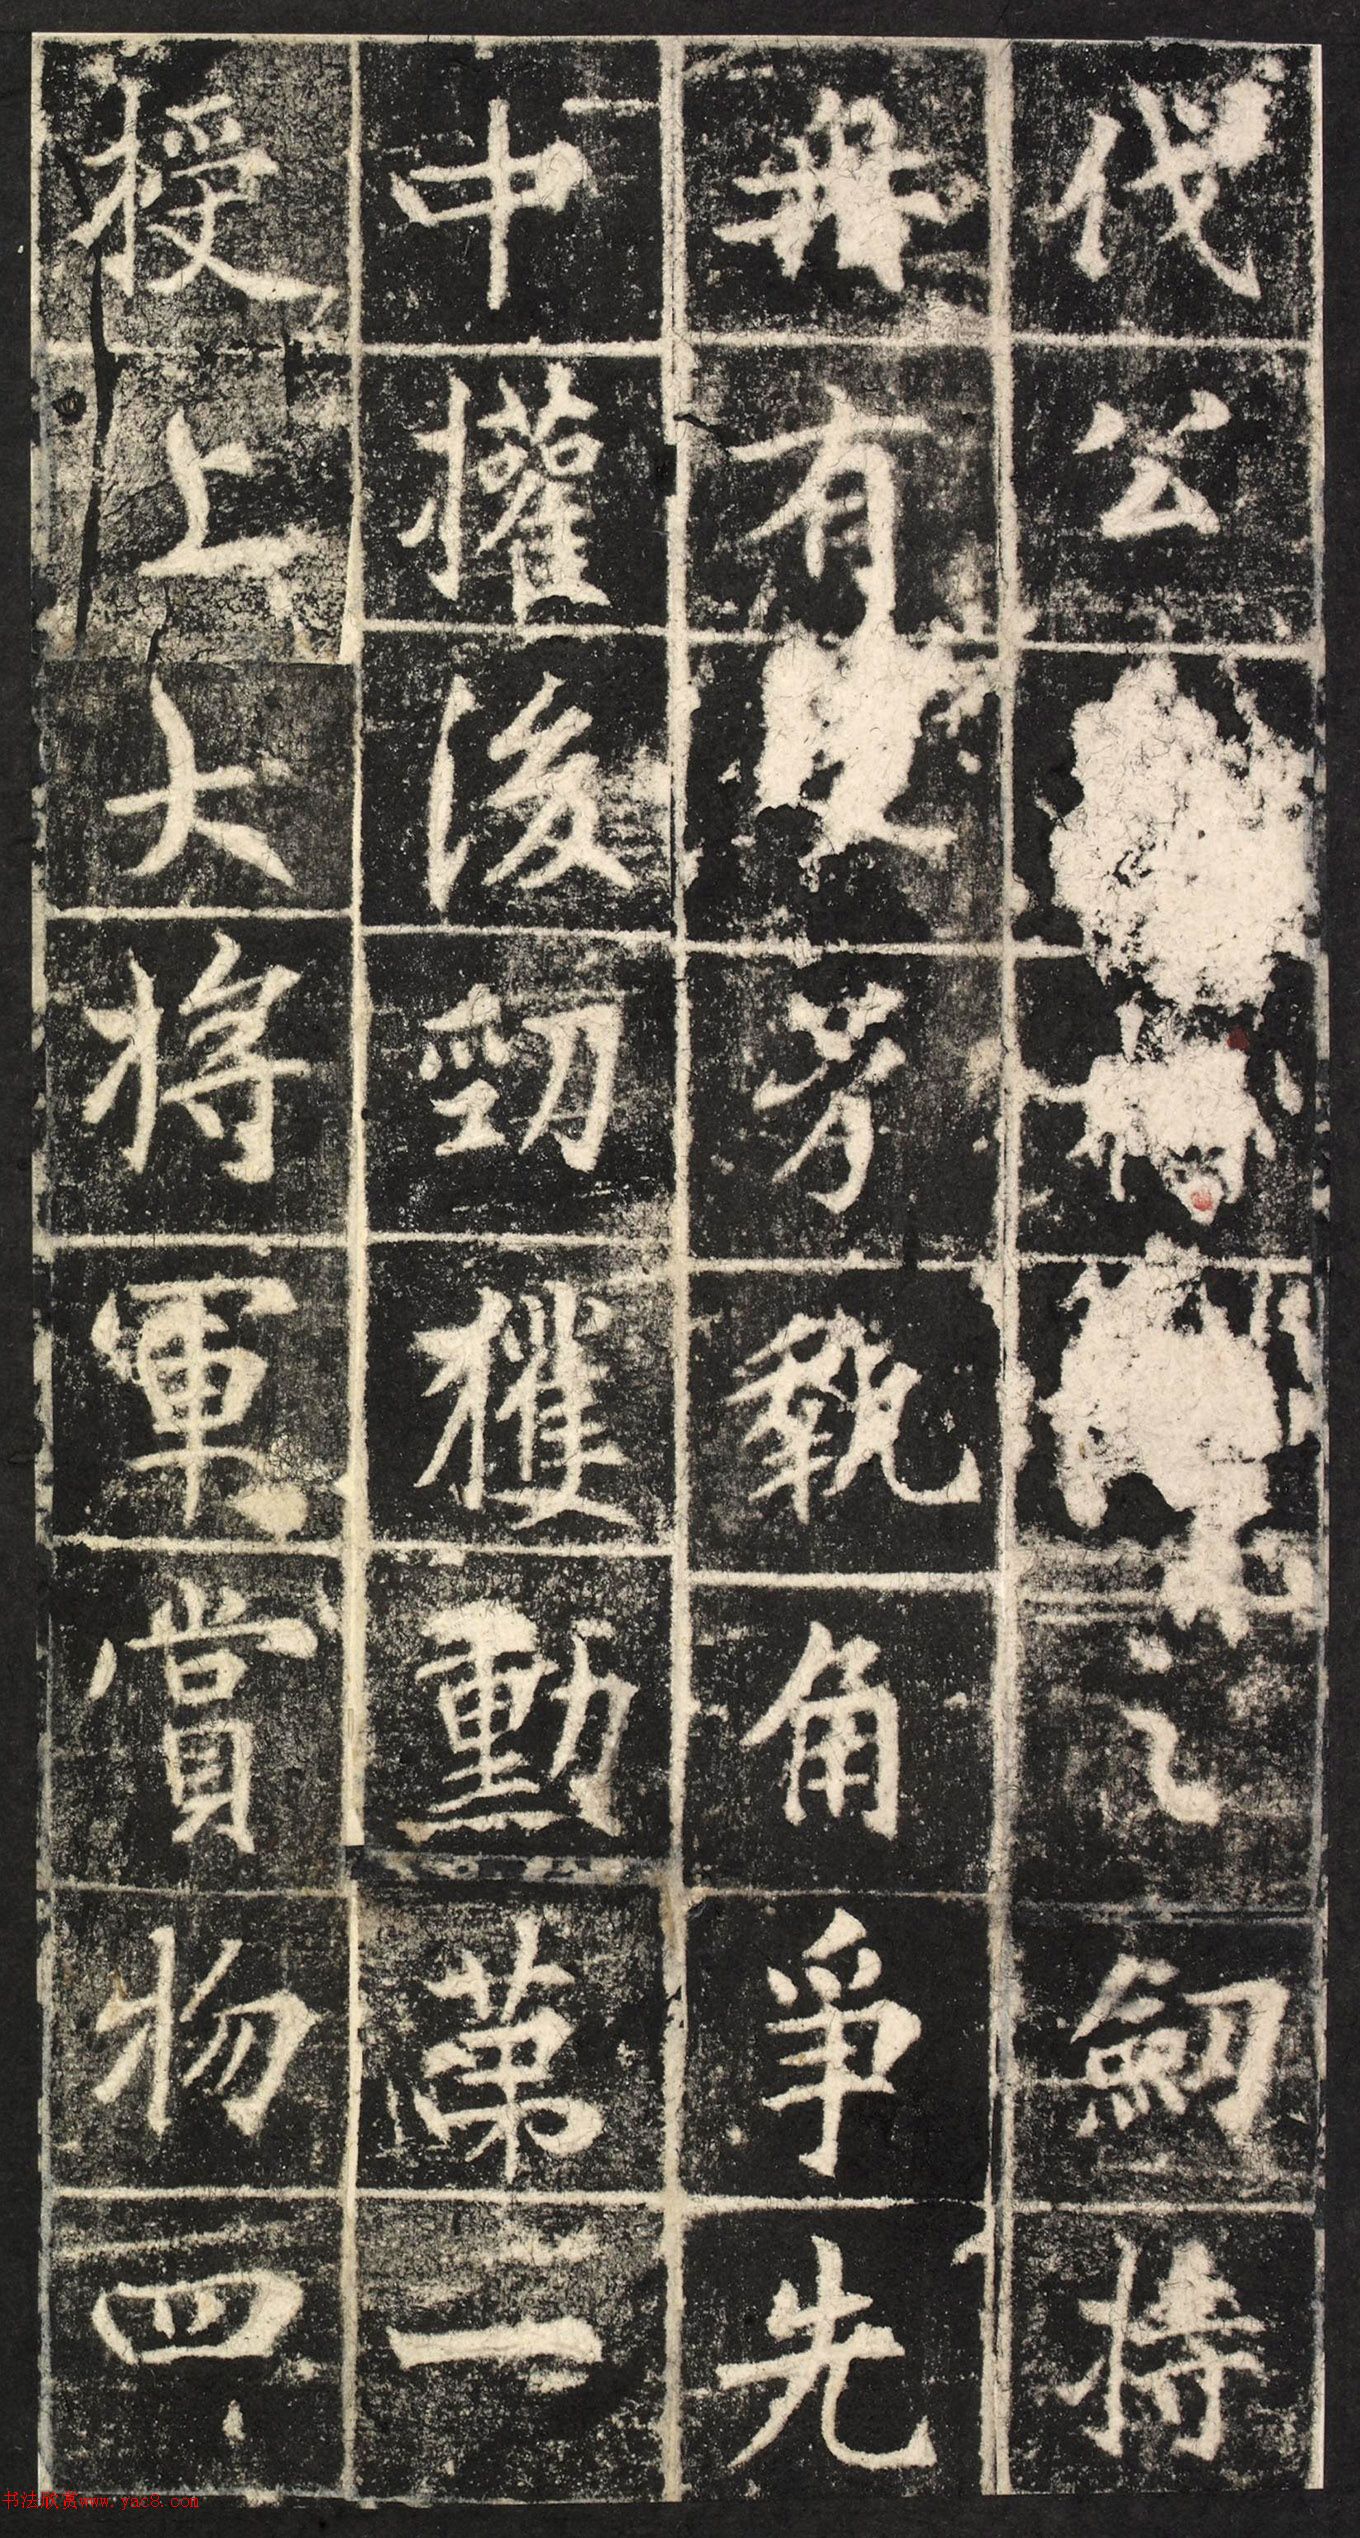 伐公之劍持
有芳執角爭先
中權後勁獲勳第一
授上大將軍賞物四
书法欣赏www.yac8.com